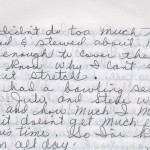 didn't do too much
& stewed about
enough to cover the
know why I can't
it stretch.
had a bowling
Judy and Steve w
and how much I m
it doesn't get much
is time. So I'm
all day.